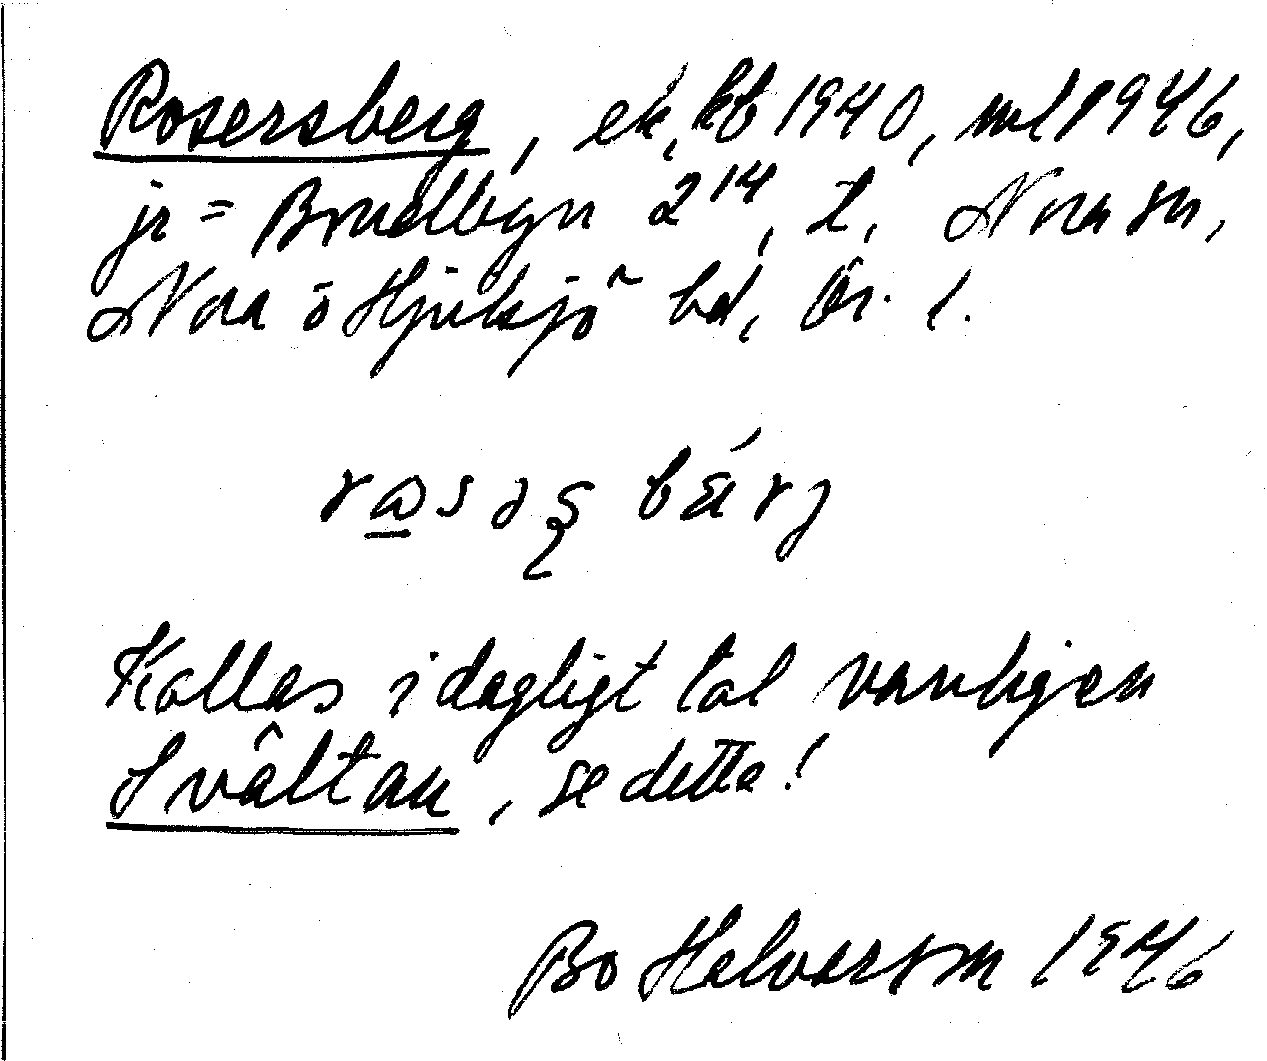 Rosersberg, ek, kb 1940, ml 1946,
jr = Bruddbyn 2¹⁴, t. Nora sn,
Nora o Hjulsjö bd, Ör. l.
Kallas i dagligt tal vanligen
Svältan, se detta!
Bo Halvarson 1946